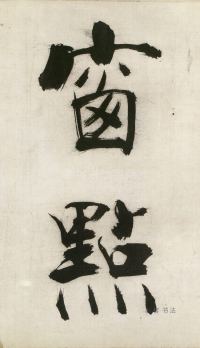 窗
點
书法